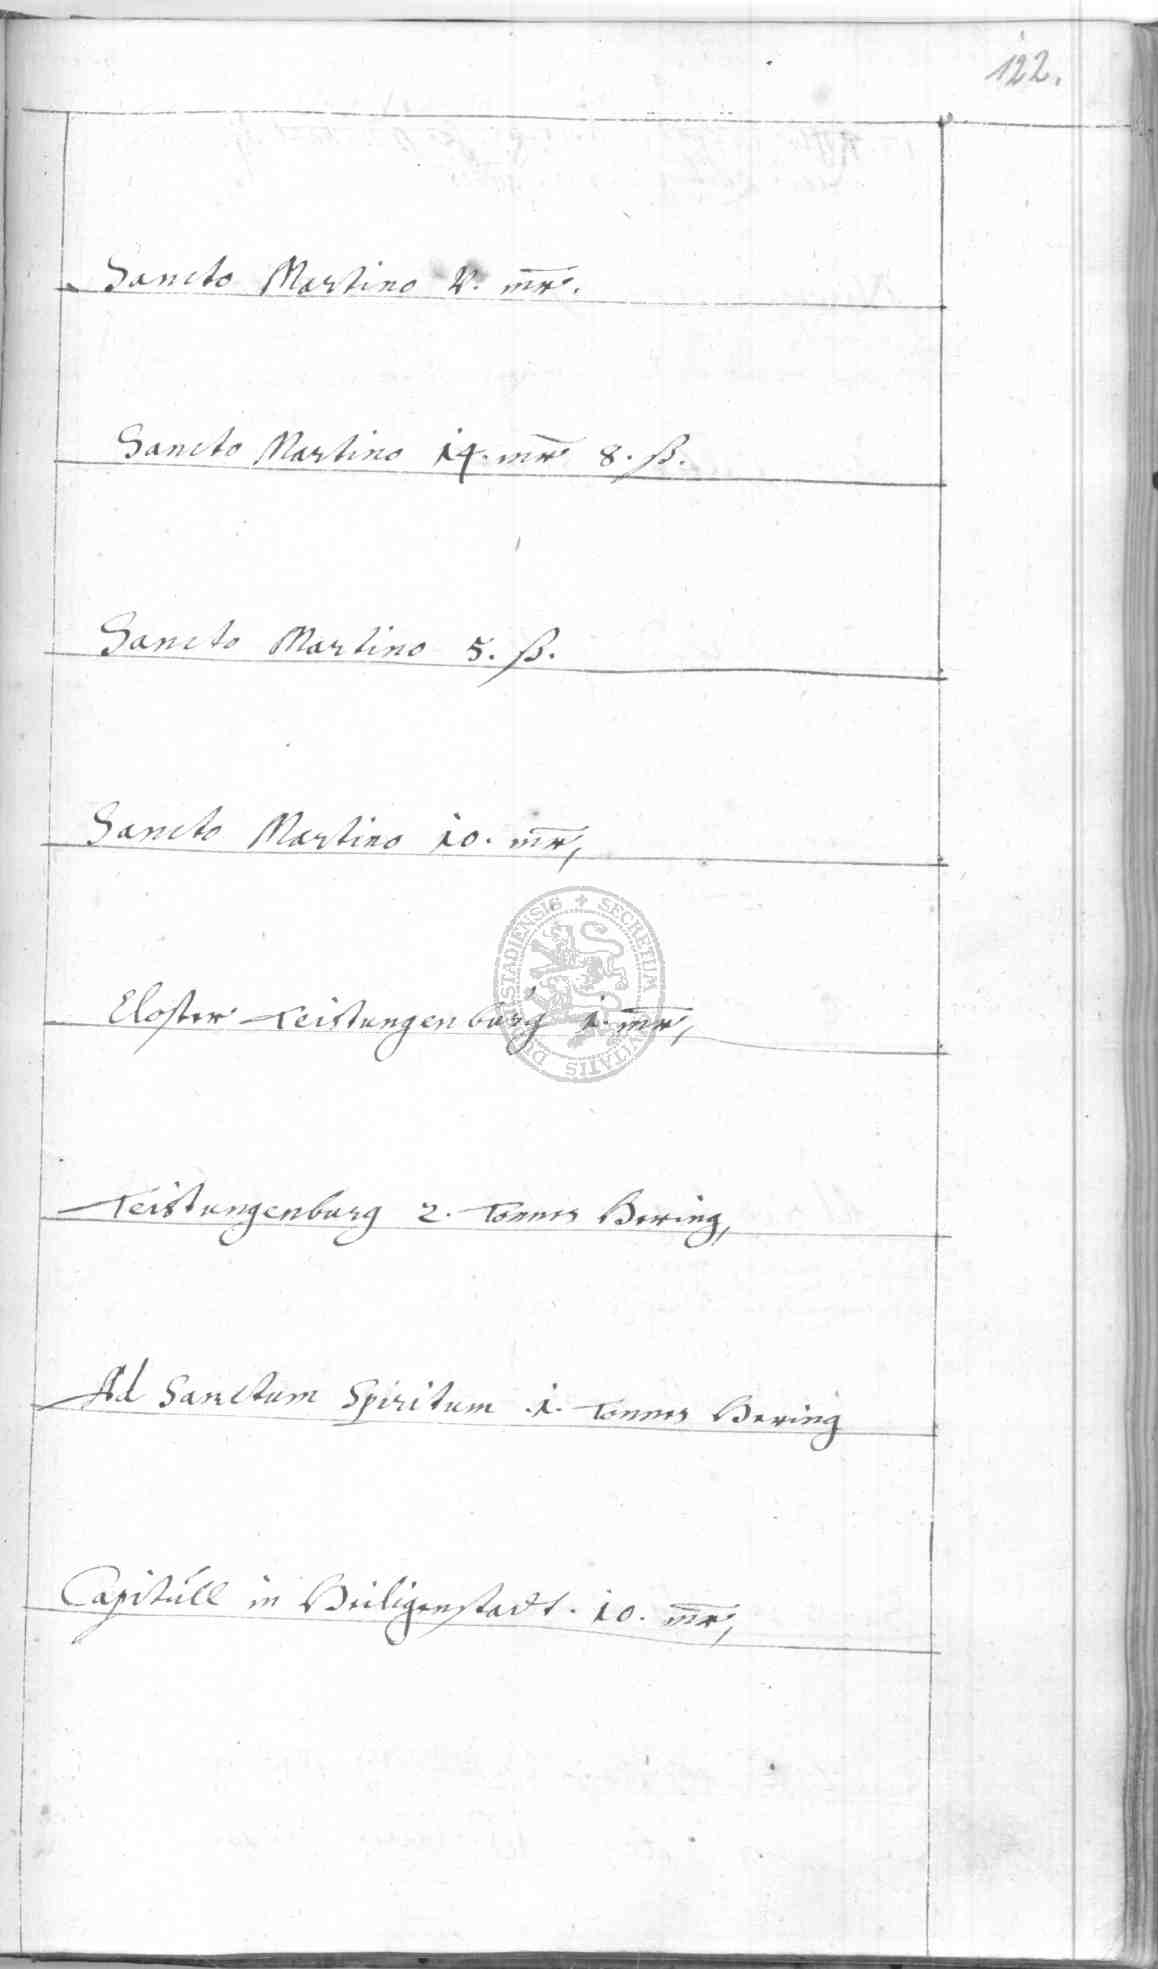 122.
Sancto Martino v. mr.
Sancto Martino 14. mr 8. ß.
Sancto Martino 5. ß.
Sancto Martino 10. mr,
Closter Teistungenburg 1. mr,
Teistungenburg 2. Tonnen Hering,
Ad Sanctum Spiritum .1. Tonnen Hering
Capitull in Heiligenstadt. 10. mr,
SECRETUM CIVITATIS DUDERSTADIENSIS